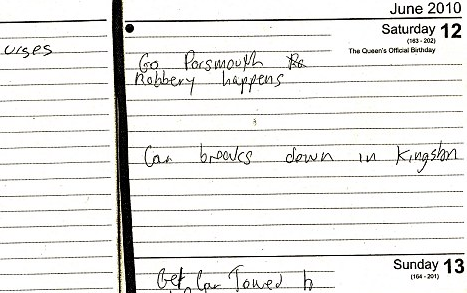 June 2010
urges
Saturday 12
(163 - 202)
The Queen's Official Birthday
Go Porsmouth
Robbery happens
Car breaks down in Kingston
Sunday 13
(164 - 201)
Get Car Towed